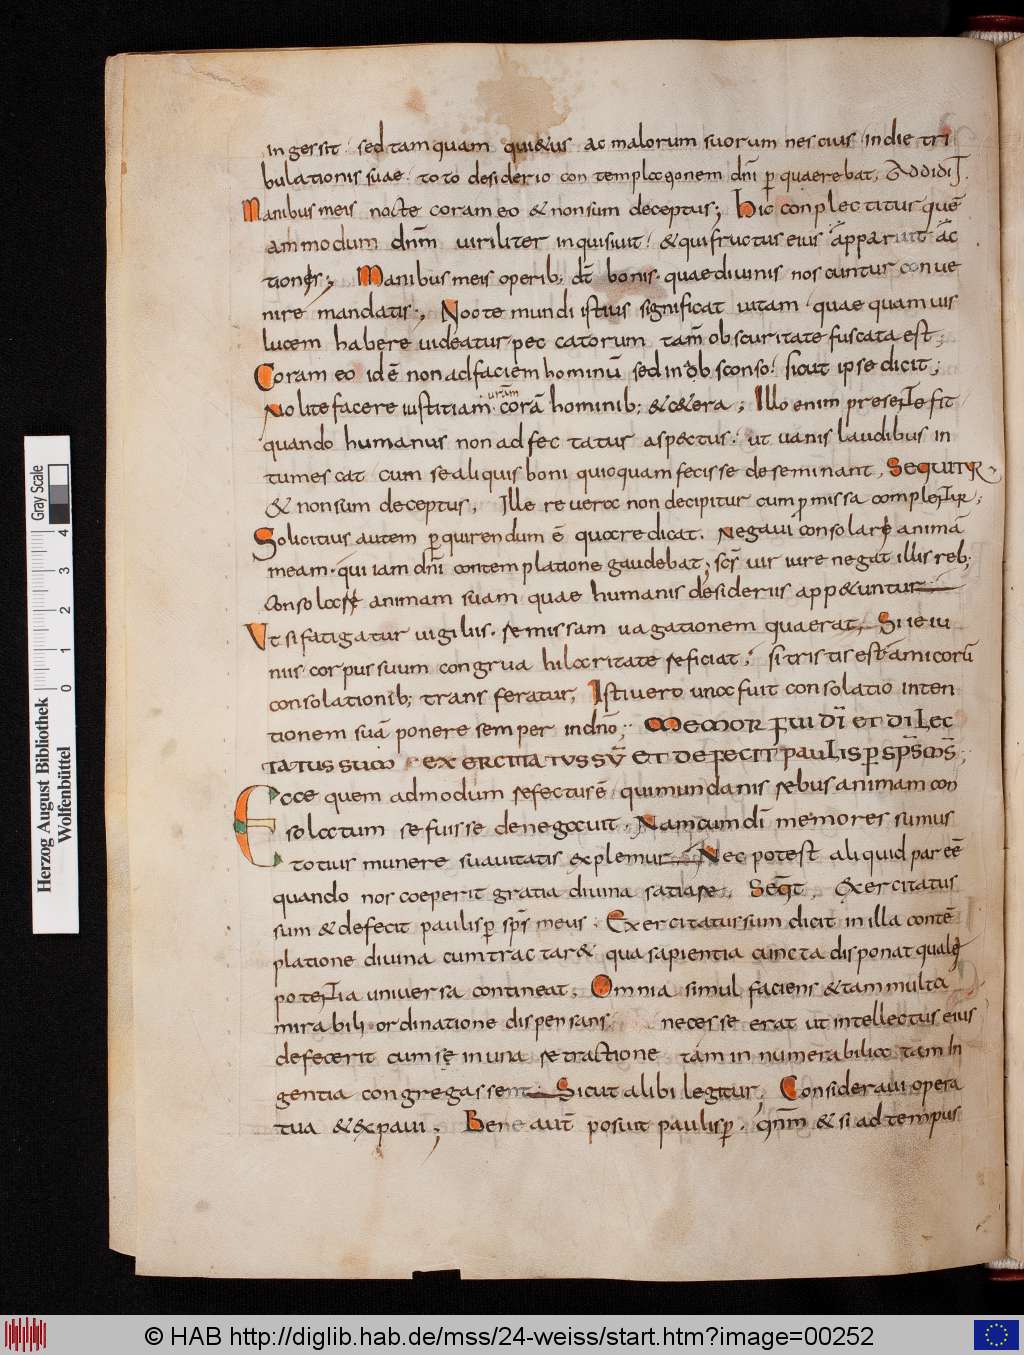 ingessit · sed tamquam qui&us ac malorum suorum nescius · in die tri
bulationis suae · toto desiderio contemplationem dnī p̄quaerebat, Addidit.
Manibus meis nocte coram eo & non sum deceptus; hic conplectitur quē
ammodum dnm̄ viriliter inquisivit! & qui fructus eius apparuit ac
tiones; Manibus meis operib; dt̄ bonis · quae divinis noscuntur conve
nire mandatis; Nocte mundi istius significat vitam · quae quamvis
lucem habere videatur peccatorum tam̄ obscuritate fuscata est;
Coram eo id ē non ad faciem hominū sed in obsconso! sicut ipse dicit;
Nolite facere iustitiam vrām corā hominib; & c&era; Illo enim presente fit
quando humanus non adfectatus aspectus · ut vanis laudibus in
tumescat · cum se aliquis boni quicquam fecisse deseminant, Sequitur
& non sum deceptus, Ille revera non decipitur cum pmissa complentur;
Solicitius autem p̄quirendum ē quare dicat. Negavi consolari animā
meam · qui iam dnī contemplatione gaudebat; scs̄ vir iure negat illis reb;
consolare animam suam quae humanis desideriis app&untur
Ut si fatigatur vigiliis · se missam vagationem quaerat, Si ieiu
niis corpus suum congrua hilaritate reficiat; si tristis est amicorū
consolationib; transferatur, Isti vero una fuit consolatio inten
tionem suā ponere semper in dnō; MEMOR FUI DĪ ET DILEC
TATUS SUM EXERCITATUS SŪ ET DEFECIT PAULISP SPS̄ MS̄;
Ecce quem admodum refectus ē · qui mundanis rebus animam con
solatum se fuisse denegavit · Nam cum dī memores sumus
totius munere suavitatis explemur Nec potest aliquid par eē
quando nos coeperit gratia divina satiare, Seqt̄, Exercitatus
sum & defecit paulisp sps̄ meus · Exercitatus sum dicit in illa contē
platione divina cum tractar& qua sapientia cuncta disponat quale
potentia universa contineat, Omnia simul faciens & tam multa
mirabili ordinatione dispensans necesse erat ut intellectus eius
defecerit cum se in una retractione tam innumerabilia tam in
gentia congregassent · Sicut alibi legitur, Consideravi opera
tua & expavi; Bene aut̄ posuit paulisp · qnm̄ & si ad tempus
Herzog August Bibliothek
Wolfenbüttel
Gray Scale
0 1 2 3 4
© HAB http://diglib.hab.de/mss/24-weiss/start.htm?image=00252